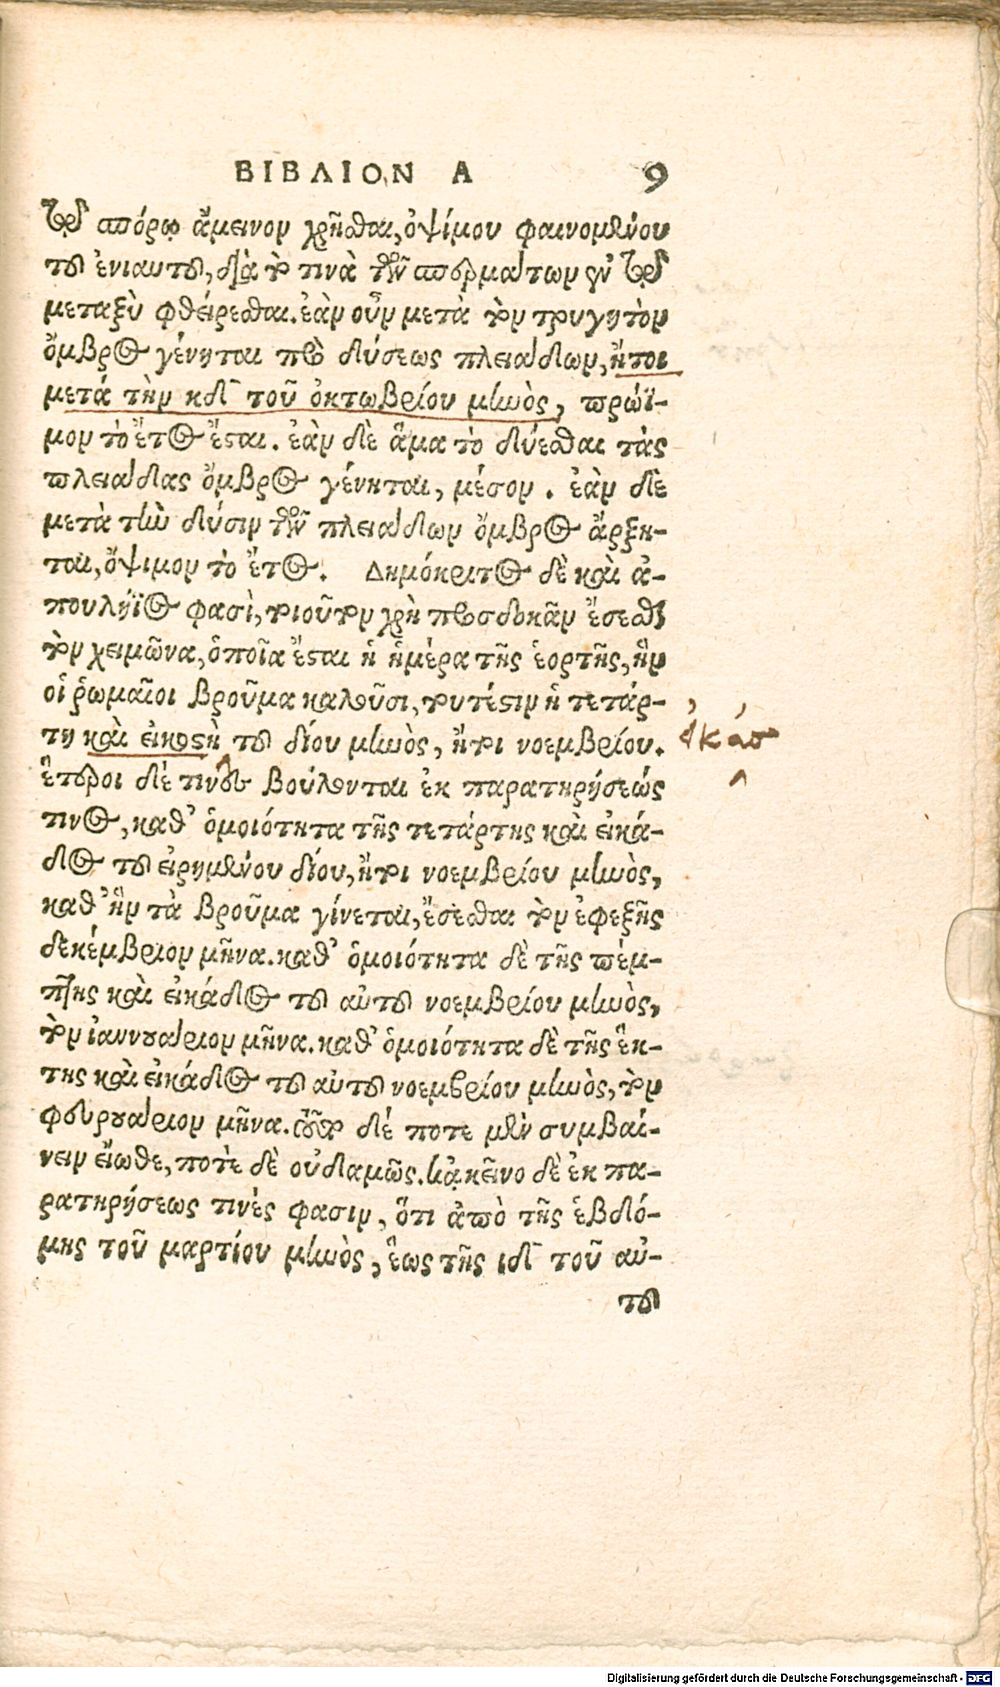 ΒΙΒΛΙΟΝ Α 9
τῷ σπόρῳ ἄμεινον χρῆσθαι, ὀψίμου φαινομένου
τοῦ ἐνιαυτοῦ, διὰ τό τινὰ τῶν σπερμάτων ἐν τῷ
μεταξὺ φθείρεσθαι. ἐὰν οὖν μετὰ τὸν τρυγητὸν
ὄμβρος γένηται πρὸ δύσεως πλειάδων, ἤτοι
μετά τὴν κδ τοῦ ὀκτωβρίου μηνὸς, πρώϊ-
μον τὸ ἔτος ἔσται. ἐὰν δὲ ἅμα τὸ δύεσθαι τὰς
πλειάδας ὄμβρος γένηται, μέσον. ἐὰν δὲ
μετὰ τὴν δύσιν τῶν πλειάδων ὄμβρος ἄρξη-
ται, ὄψιμον τὸ ἔτος. Δημόκριτος δὲ καὶ ἀ-
πουλήϊος φασὶ, τοιοῦτον χρὴ προσδοκᾶν ἔσεσθαι
τὸν χειμῶνα, ὁποῖα ἔσται ἡ ἡμέρα τῆς ἑορτῆς, ἣν
οἱ ῥωμαῖοι βροῦμα καλοῦσι, τουτέστιν ἡ τετάρ-
τη καὶ εἰκοστὴ τοῦ δίου μηνὸς, ἤτοι νοεμβρίου.
ἕτεροι δέ τινες βούλονται ἐκ παρατηρήσεώς
τινος, καθ' ὁμοιότητα τῆς τετάρτης καὶ εἰκά-
δος τοῦ εἰρημένου δίου, ἤτοι νοεμβρίου μηνὸς,
καθ' ἣν τὰ βροῦμα γίνεται, ἔσεσθαι τὸν ἐφεξῆς
δεκέμβριον μῆνα. καθ' ὁμοιότητα δὲ τῆς πέμ-
πτης καὶ εἰκάδος τοῦ αὐτοῦ νοεμβρίου μηνὸς,
τὸν ἰαννουάριον μῆνα. καθ' ὁμοιότητα δὲ τῆς ἕκ-
της καὶ εἰκάδος τοῦ αὐτοῦ νοεμβρίου μηνὸς, τὸν
φευρουάριον μῆνα. τοῦτο δέ ποτε μὲν συμβαί-
νειν εἴωθε, ποτὲ δὲ οὐδαμῶς. κἀκεῖνο δὲ ἐκ πα-
ρατηρήσεως τινὲς φασιν, ὅτι ἀπὸ τῆς ἑβδό-
μης τοῦ μαρτίου μηνὸς, ἕως τῆς ιδ τοῦ αὐ-
τοῦ
Digitalisierung gefördert durch die Deutsche Forschungsgemeinschaft - DFG